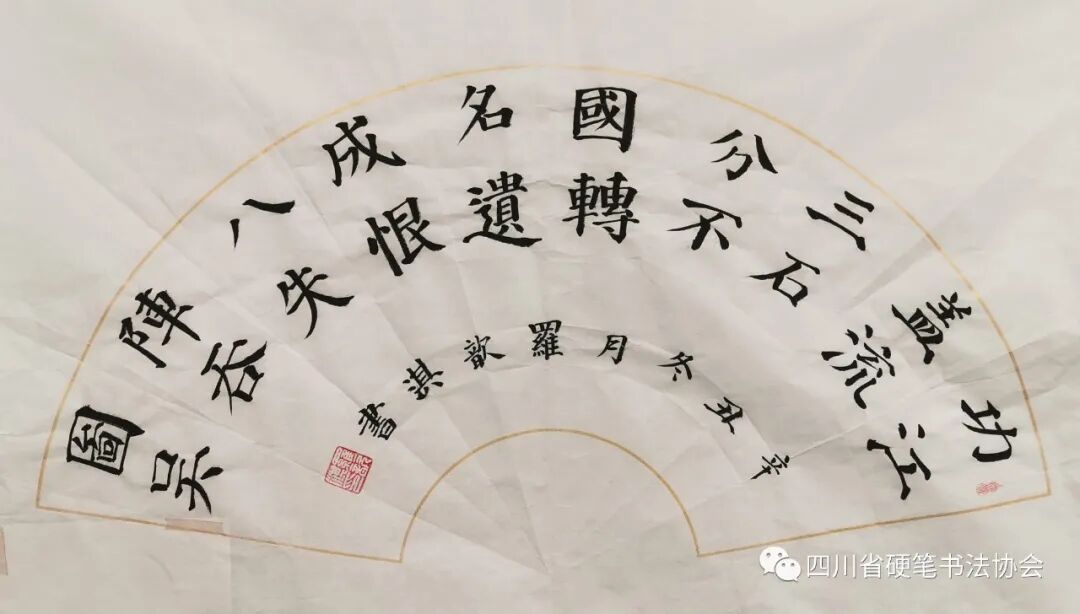 功蓋三分國名成八陣圖
江流石不轉遺恨失吞吳
辛丑冬月羅歆淇書
四川省硬笔书法协会